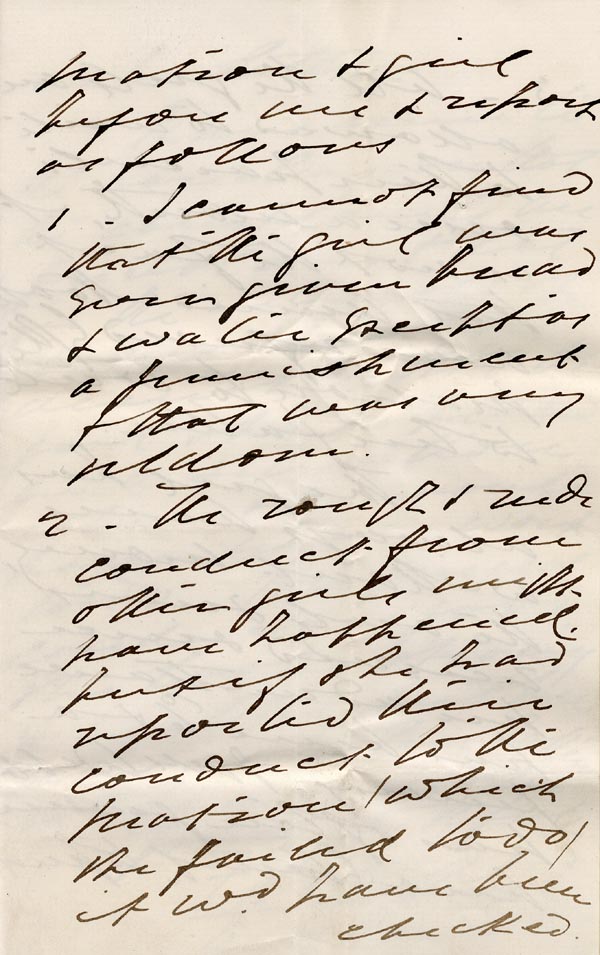 matron & girl
before me & report
as follows
1. I cannot find
that the girl was
Ever given bread
& water Except as
a punishment
& that was very
seldom.
2. The rough & rude
conduct from
other girls might
have happened.
but if she had
reported their
conduct to the
matron (which
she failed to do)
it wd. have been
checked.